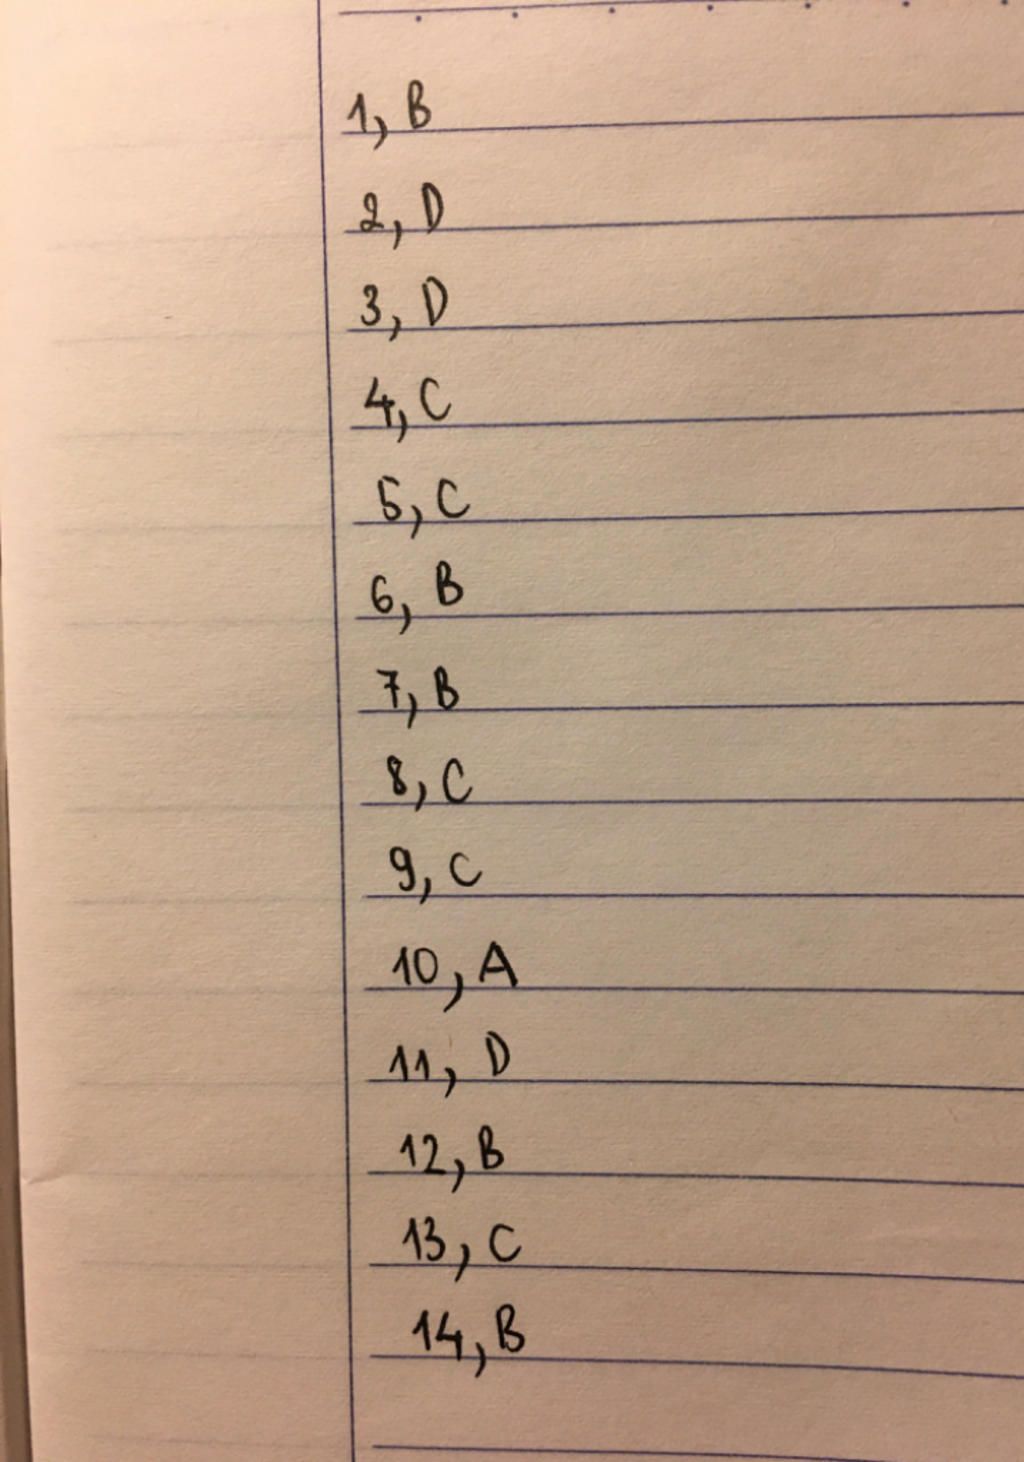 1, B
2, D
3, D
4, C
5, C
6, B
7, B
8, C
9, C
10, A
11, D
12, B
13, C
14, B